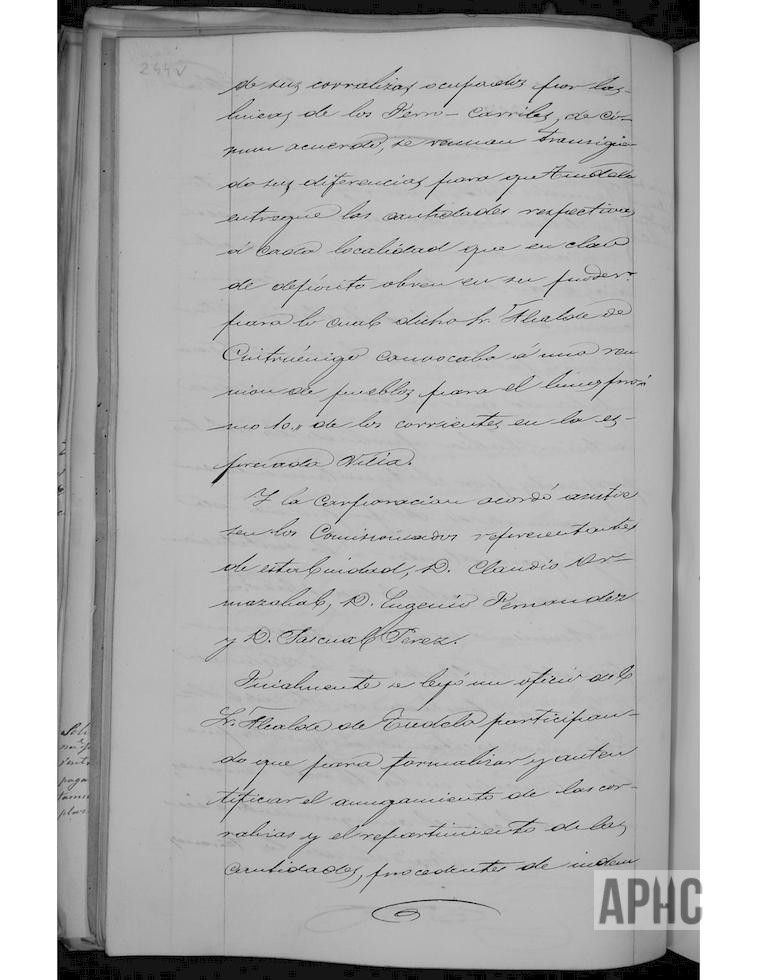 244v
de sus corralizas ocupados por las
lineas de los Ferro-carriles, de co-
mun acuerdo, se reunan transigien
do sus diferencias para que Tudela
entregue las cantidades respectivas
á cada localidad que en clase
de depósito obren en su poder
para lo cual dicho Sr. Alcalde de
Cintruénigo convocaba á una reu
nion de pueblos para el lunes próxi
mo 10,, de los corrientes en la es-
presada Villa.
Y la Corporacion acordó asistie
sen los Comisionados representantes
de esta Ciudad, D. Claudio Ar-
mazabal, D. Eugenio Fernandez
y D. Pascual Perez.
Finalmente se leyó un oficio del
Sr. Alcalde de Tudela participan-
do que para formalizar y auten
tificar el amugamiento de las cor-
ralizas y el repartimiento de las
cantidades, procedentes de indem
APHC